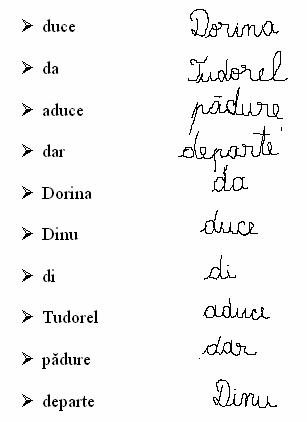 duce Dorina
da Tudorel
aduce pădure
dar departe
Dorina da
Dinu duce
di di
Tudorel aduce
pădure dar
departe Dinu